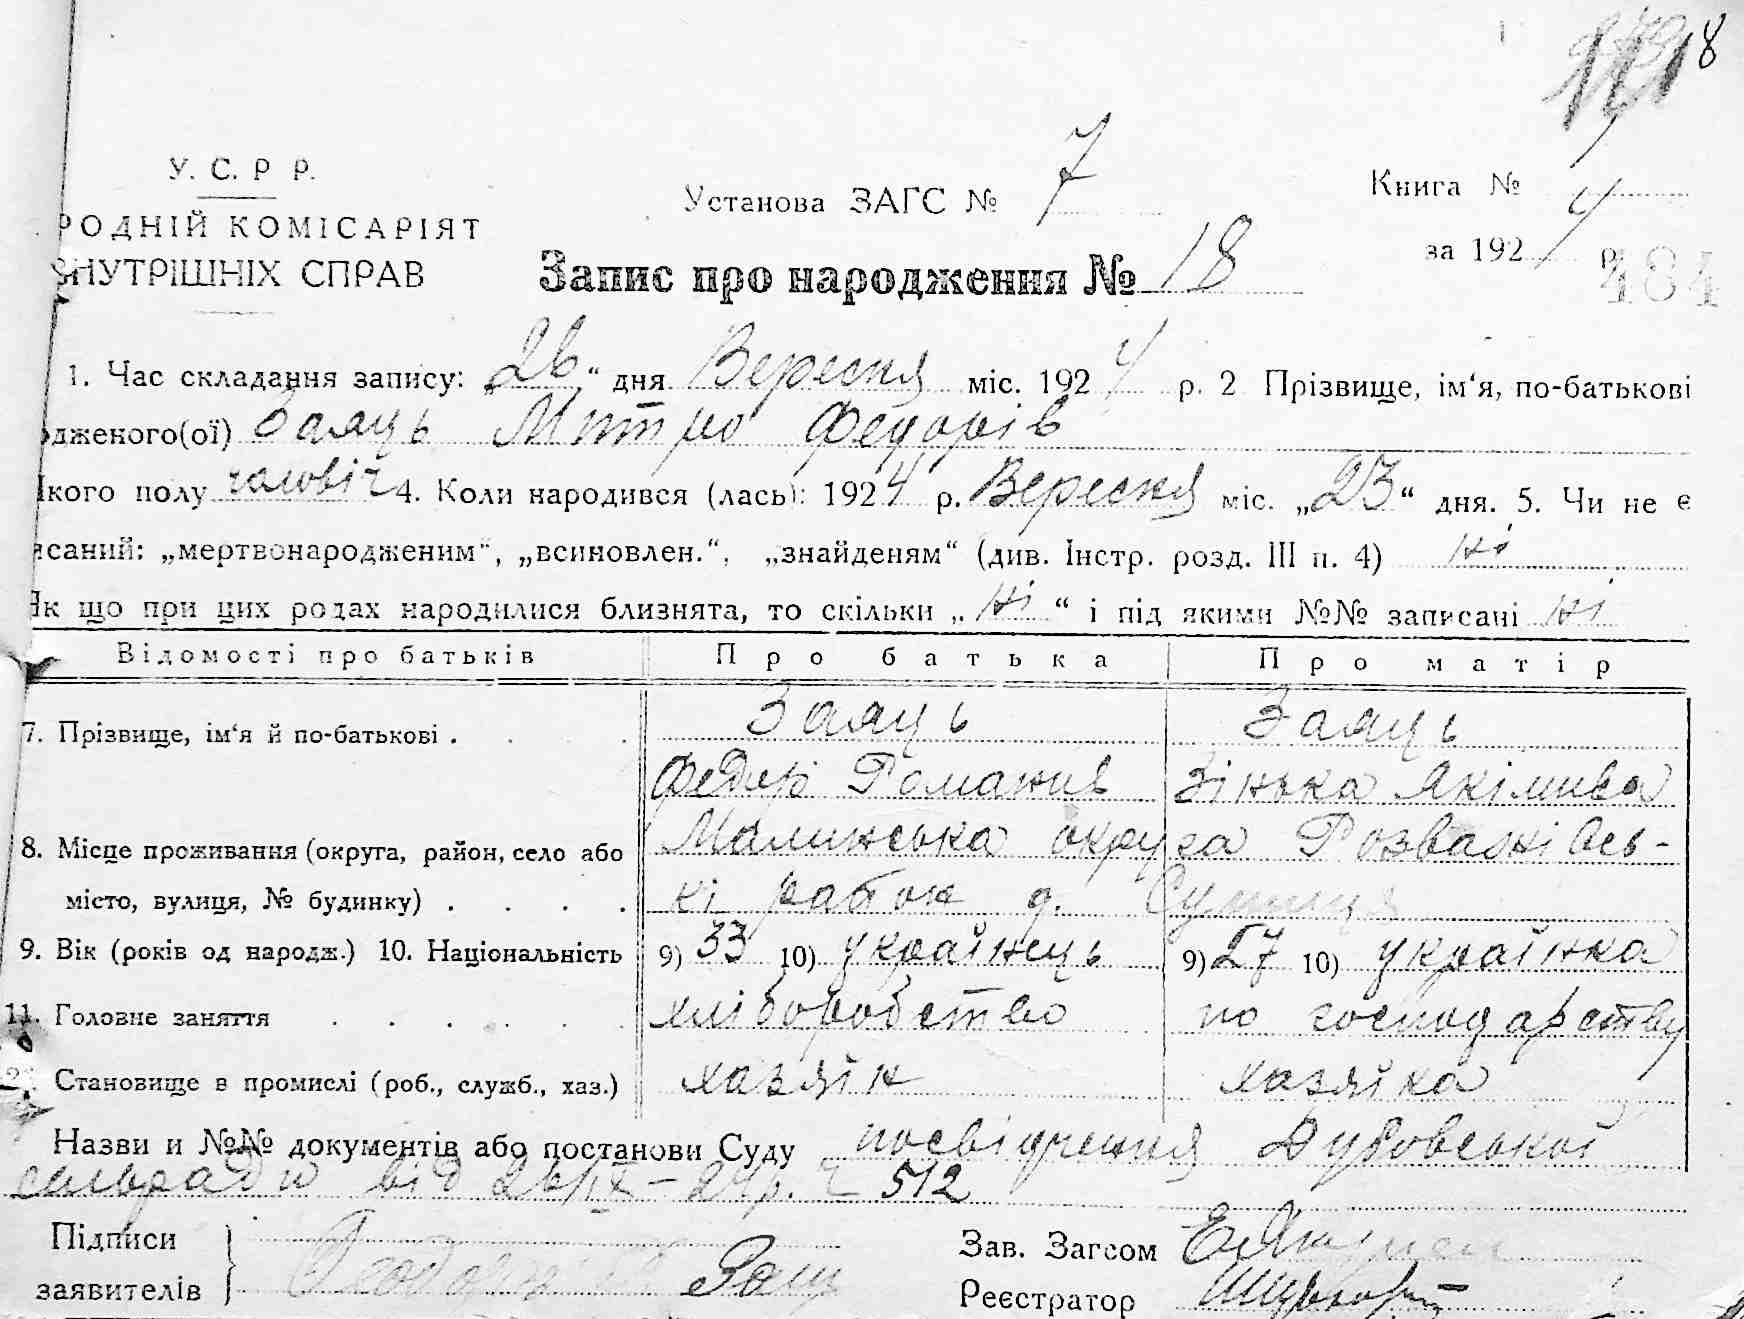 8
У. С. Р Р.
РОДНІЙ КОМІСАРІЯТ
ВНУТРІШНІХ СПРАВ
Установа ЗАГС № 7
Книга №
за 1924 р.
484
Запис про народження № 18
1. Час складання запису: „26“ дня Вересня міс. 1924 р. 2 Прізвище, ім‘я, по-батькові
одженого(ої) Заяць Митро Федорів
Якого полу чоловіч 4. Коли народився (лась): 1924 р. Вересня міс. „23“ дня. 5. Чи не є
исаний: „мертвонародженим“, „всиновлен.“, „знайденям“ (див. Інстр. розд. III п. 4) ні
Як що при цих родах народилися близнята, то скільки „ні“ і під якими №№ записані ні
Відомості про батьків Про батька Про матір
7. Прізвище, ім‘я й по-батькові . . . . Заяць Заяць
Федір Романив Зінька Якімива
8. Місце проживання (округа, район, село або Малинська округа Розважівсь-
місто, вулиця, № будинку) . . . . кі район д.
9. Вік (років од народж.) 10. Національність 9) 33 10) українець 9) 27 10) українка
11. Головне заняття . . . . . . хліборобство по господарству
Становище в промислі (роб., служб., хаз.) хазяїн хазяїка
Назви и №№ документів або постанови Суду посвідчення Дубовської
сельради від 26/IX-24р. Ч 512
Підписи
заявителів Заяц
Зав. Загсом
Реєстратор